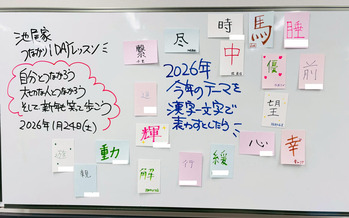 池尾家
つながりIDAレッスン
自分とつながろう
大切な人とつながろう
そして新年も笑って歩こう
2026年1月24日(土)
2026年
今年のテーマを
漢字一文字で
表わすとしたら
繋
尽
時
馬
睡
中
優
前
望
輝
動
解
緩
心
幸